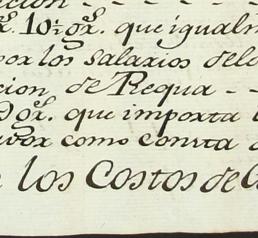 10½ gr̃. que igualm
por los salarios de lo
cion de Requa - -
gr̃. que importa
avor como consta
los Costos de